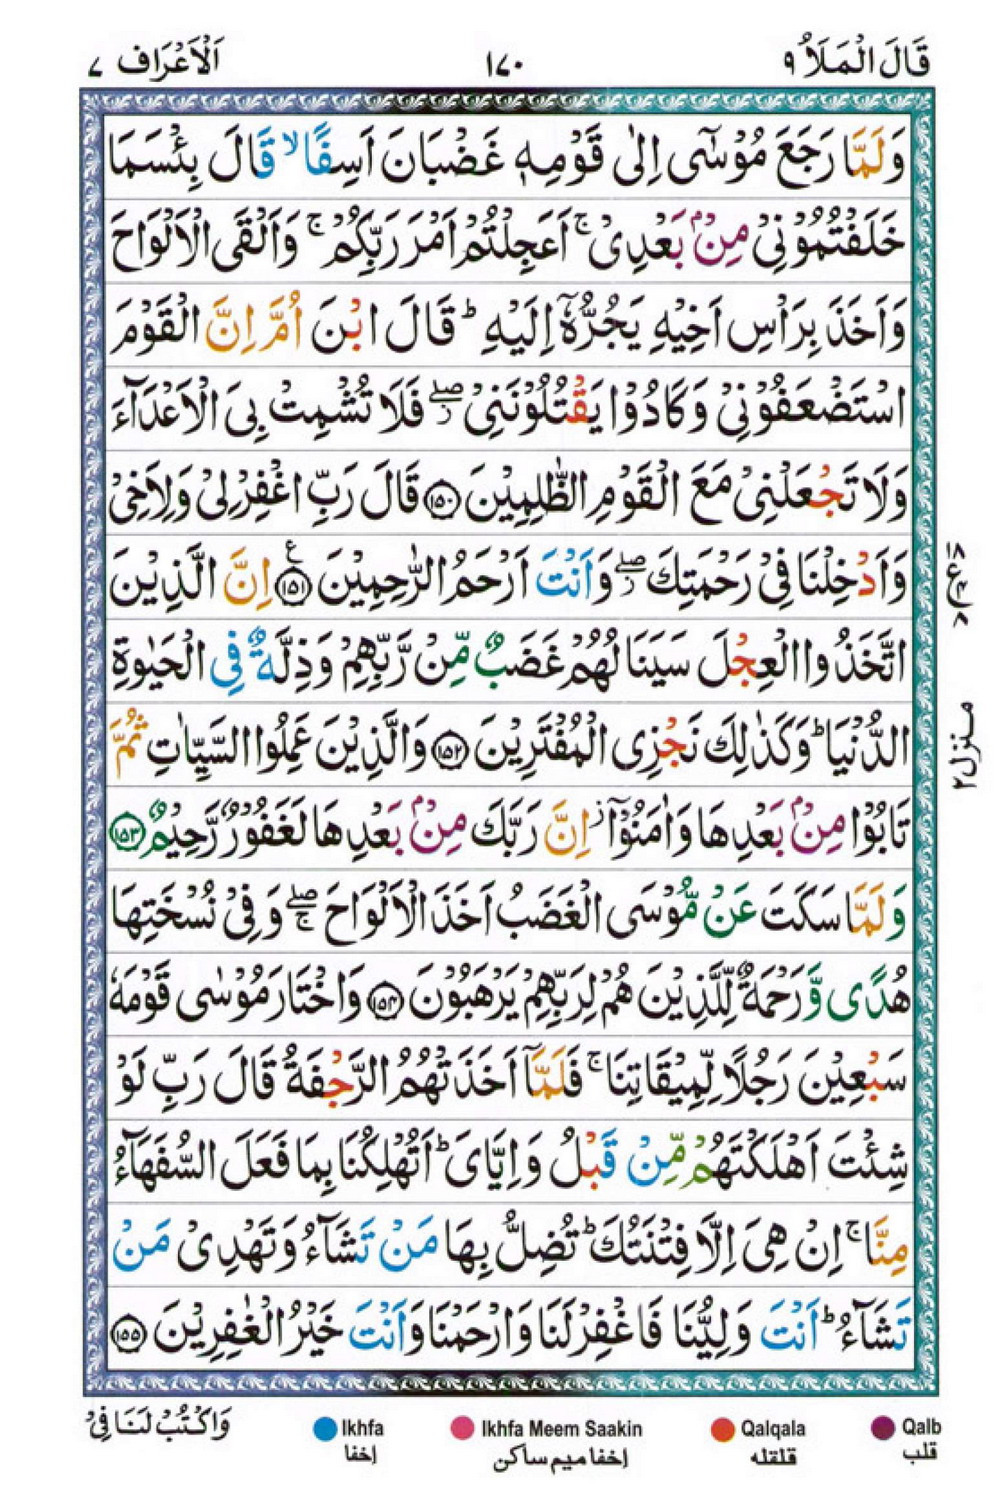 قَالَ الْمَلَاُ ٩
١٧٠
اَلْاَعْرَاف ٧
وَلَمَّا رَجَعَ مُوْسٰٓى اِلٰى قَوْمِهٖ غَضْبَانَ اَسِفًا ۙ قَالَ بِئْسَمَا
خَلَفْتُمُوْنِيْ مِنْۢ بَعْدِيْ ۚ اَعَجِلْتُمْ اَمْرَ رَبِّكُمْ ۚ وَاَلْقَى الْاَلْوَاحَ
وَاَخَذَ بِرَاْسِ اَخِيْهِ يَجُرُّهٗٓ اِلَيْهِ ؕ قَالَ ابْنَ اُمَّ اِنَّ الْقَوْمَ
اسْتَضْعَفُوْنِيْ وَكَادُوْا يَقْتُلُوْنَنِيْ ۖ فَلَا تُشْمِتْ بِيَ الْاَعْدَآءَ
وَلَا تَجْعَلْنِيْ مَعَ الْقَوْمِ الظّٰلِمِيْنَ ١٥٠ قَالَ رَبِّ اغْفِرْ لِيْ وَلِاَخِيْ
وَاَدْخِلْنَا فِيْ رَحْمَتِكَ ۖ وَاَنْتَ اَرْحَمُ الرّٰحِمِيْنَ ١٥١ اِنَّ الَّذِيْنَ
اتَّخَذُوا الْعِجْلَ سَيَنَالُهُمْ غَضَبٌ مِّنْ رَّبِّهِمْ وَذِلَّةٌ فِي الْحَيٰوةِ
الدُّنْيَا ؕ وَكَذٰلِكَ نَجْزِي الْمُفْتَرِيْنَ ١٥٢ وَالَّذِيْنَ عَمِلُوا السَّيِّاٰتِ ثُمَّ
تَابُوْا مِنْۢ بَعْدِهَا وَاٰمَنُوْٓا ؗ اِنَّ رَبَّكَ مِنْۢ بَعْدِهَا لَغَفُوْرٌ رَّحِيْمٌ ١٥٣
وَلَمَّا سَكَتَ عَنْ مُّوْسَى الْغَضَبُ اَخَذَ الْاَلْوَاحَ ۖۚ وَفِيْ نُسْخَتِهَا
هُدًى وَّرَحْمَةٌ لِّلَّذِيْنَ هُمْ لِرَبِّهِمْ يَرْهَبُوْنَ ١٥٤ وَاخْتَارَ مُوْسٰى قَوْمَهٗ
سَبْعِيْنَ رَجُلًا لِّمِيْقَاتِنَا ۚ فَلَمَّآ اَخَذَتْهُمُ الرَّجْفَةُ قَالَ رَبِّ لَوْ
شِئْتَ اَهْلَكْتَهُمْ مِّنْ قَبْلُ وَاِيَّايَ ؕ اَتُهْلِكُنَا بِمَا فَعَلَ السُّفَهَآءُ
مِنَّا ۚ اِنْ هِيَ اِلَّا فِتْنَتُكَ ؕ تُضِلُّ بِهَا مَنْ تَشَآءُ وَتَهْدِيْ مَنْ
تَشَآءُ ؕ اَنْتَ وَلِيُّنَا فَاغْفِرْ لَنَا وَارْحَمْنَا وَاَنْتَ خَيْرُ الْغٰفِرِيْنَ ١٥٥
منزل ٢
وَاكْتُبْ لَنَا فِيْ
Ikhfa
اخفا
Ikhfa Meem Saakin
اخفا میم ساکن
Qalqala
قلقله
Qalb
قلب